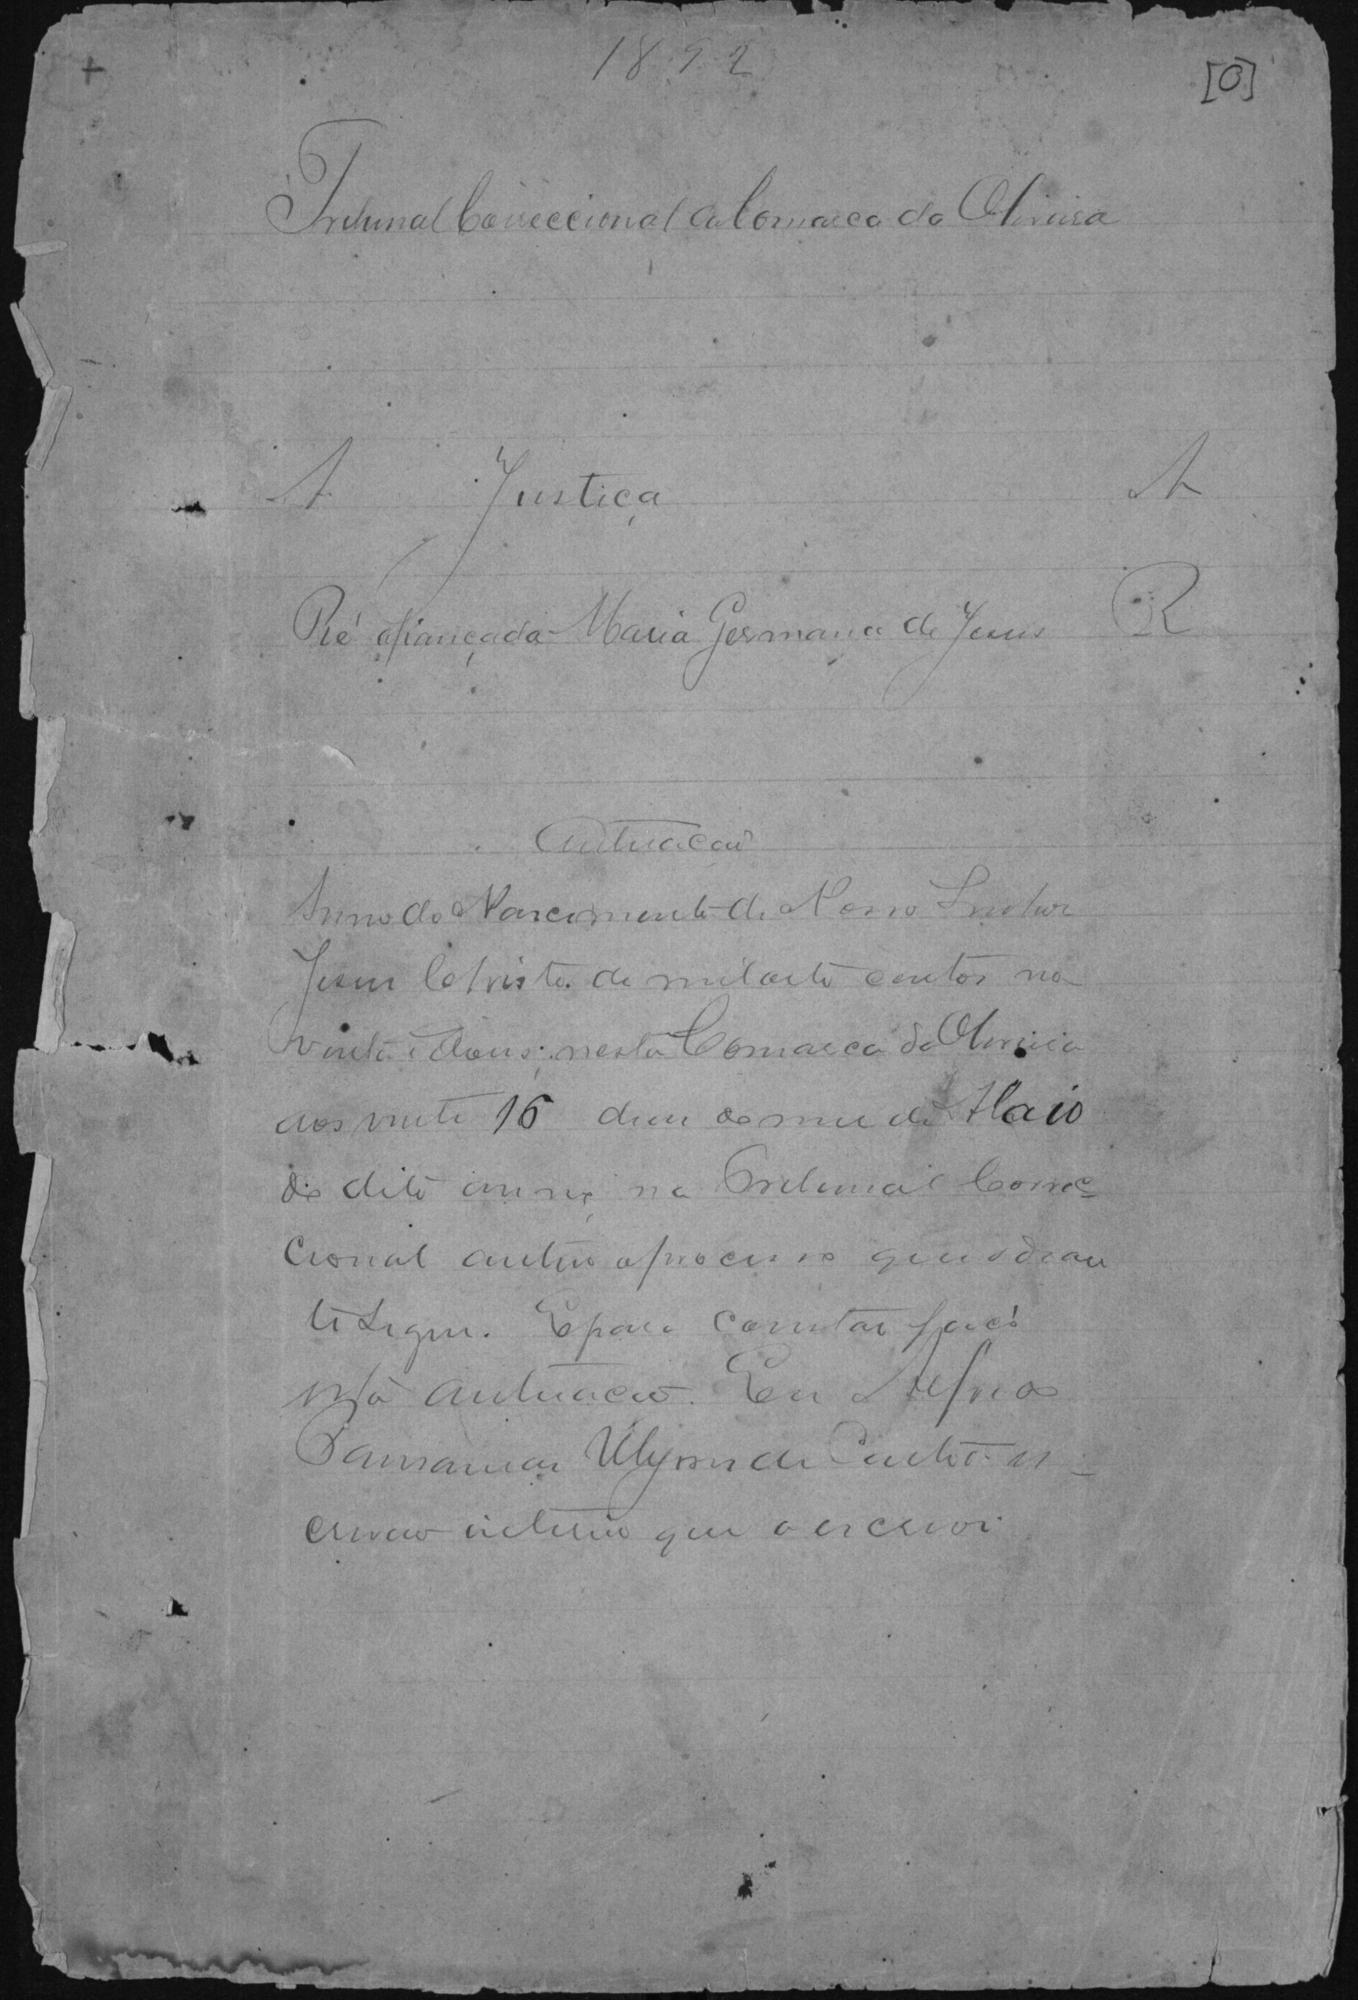 1892
[0]
Tribunal Correccional da Comarca da Oliveira
A Justiça A
Ré afiançada Maria Germana de Jesus R
Autuacão
Anno do Nascimento de Nosso Senhor
Jesus Christo de mil oito centos no
venta e dous, nesta Comarca da Oliveira
aos vinte 16 dias do mez de Maio
do dito anno, no Tribunal Correc-
cional autuo o processo que adean
te segue. E para constar faço
esta autuacão. Eu
Ulysses de Castro es-
crivão interino que o escrevi